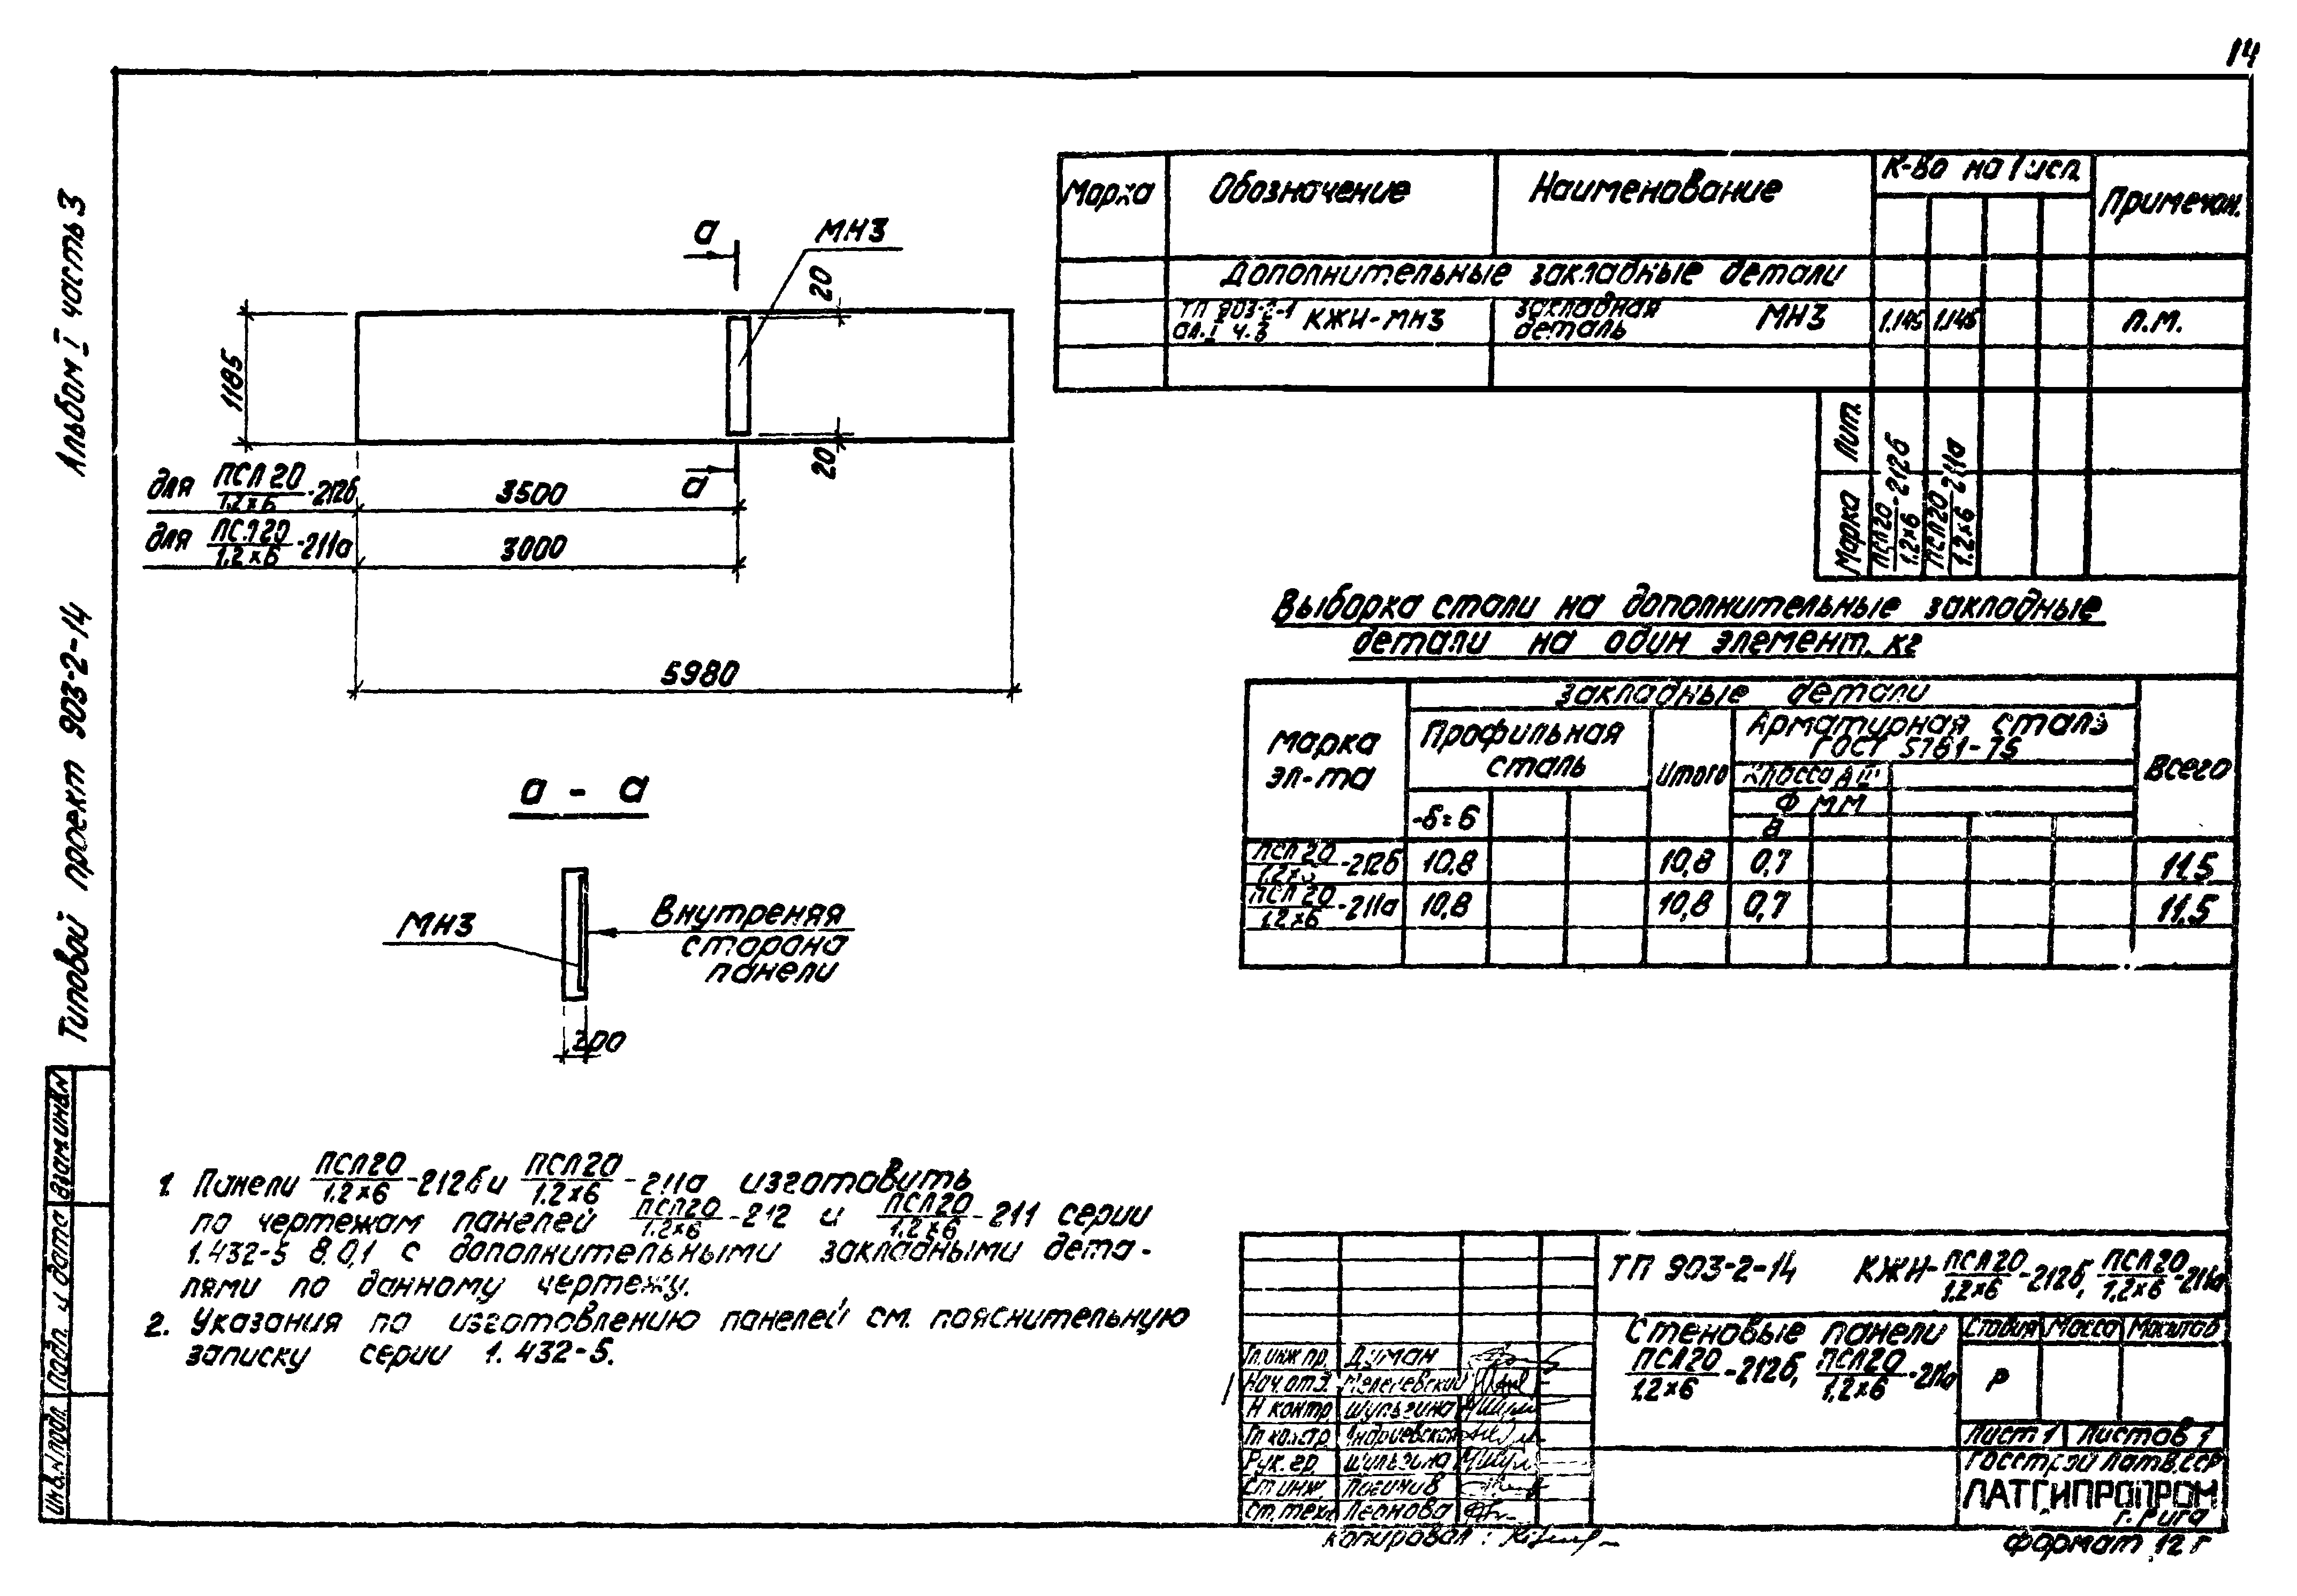 14
Альбом I часть 3
Типовой проект 903-2-14
Взам.инв.N
Подп. и дата
Инв.N подл.
а
МНЗ
20
1185
20
а
для ПСЛ 20 / 1.2×6 -212б
3500
для ПСЛ 20 / 1.2×6 -211а
3000
5980
а - а
МНЗ
Внутреняя
сторона
панели
200
Марка
Обозначение
Наименование
К-во на 1 исп.
Примечан.
Дополнительные закладные детали
ТП 903-2-1
ал. I ч.3
КЖИ-МНЗ
закладная
деталь
МНЗ
1.145
1.145
п.м.
Лит.
Марка
ПСЛ 20 / 1.2×6 -212б
ПСЛ 20 / 1.2×6 -211а
Выборка стали на дополнительные закладные
детали на один элемент, кг
Марка
эл-та
закладные детали
Профильная
сталь
Итого
Арматурная сталь
ГОСТ 5781-75
Класса А III
Ф мм
Всего
-δ=6
8
ПСЛ 20 / 1.2×6 -212б 10,8 10,8 0,7 11.5
ПСЛ 20 / 1.2×6 -211а 10,8 10,8 0,7 11.5
1. Панели ПСЛ20 / 1.2×6 -212б и ПСЛ20 / 1.2×6 -211а изготовить
по чертежам панелей ПСЛ20 / 1.2×6 -212 и ПСЛ20 / 1.2×6 -211 серии
1.432-5 В.0,1 с дополнительными закладными дета-
лями по данному чертежу.
2. Указания по изготовлению панелей см. пояснительную
записку серии 1.432-5.
ТП 903-2-14 КЖИ- ПСЛ20 / 1.2×6 -212б, ПСЛ20 / 1.2×6 -211а
Стеновые панели
ПСЛ20 / 1.2×6 -212б, ПСЛ20 / 1.2×6 -211а
Стадия Масса Масштаб
Р
Лист 1 Листов 1
Госстрой Латв.ССР
ЛАТГИПРОПРОМ
г. Рига
Гл.инж.пр. Думан
Нач.отд.
Н контр Шульгина
Гл.констр Андриевская
Рук.гр. Шульгина
Ст инж.
Ст.техн Леонова
Копировал:
Формат 12 г